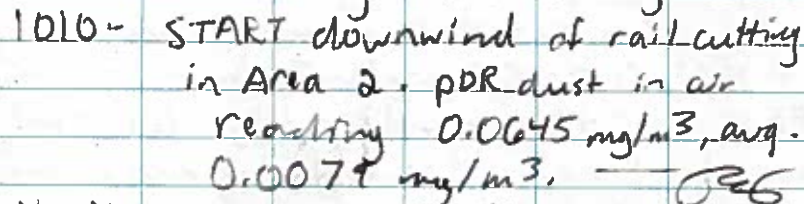 1010- START downwind of rail cutting
in Area 2. pDR dust in air
reading 0.0645 mg/m3, avg.
mg/m3.